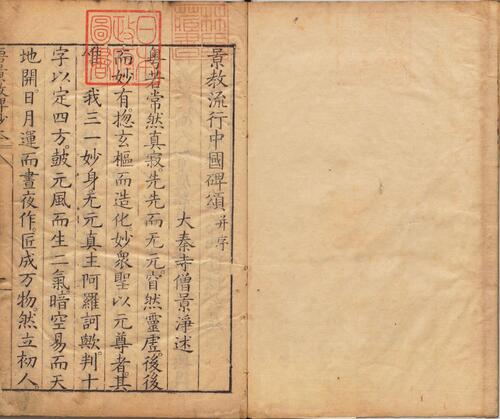 景教流行中國碑頌并序
大秦寺僧景淨述
粵若常然真寂先先而无元窅然靈虛後後
而妙有惣玄樞而造化妙衆聖以元尊者其
唯我三一妙身无元真主阿羅訶歟判十
字以定四方鼓元風而生二氣暗空易而天
地開日月運而晝夜作匠成万物然立初人